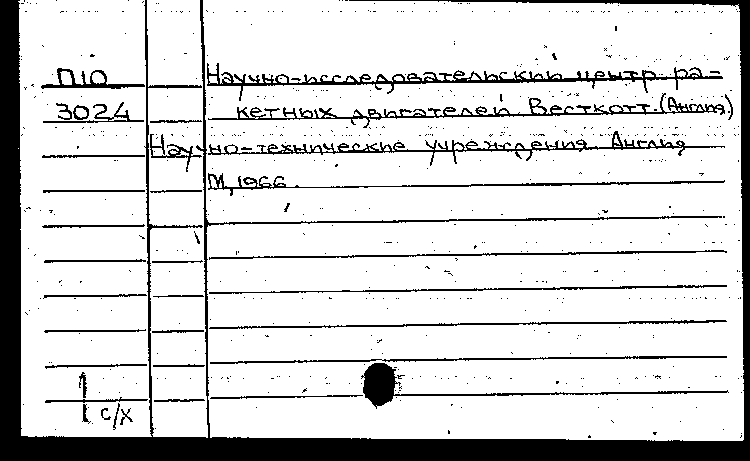 П10 Научно-исследовательский центр ра=
3024 кетных двигателей Весткотт.(Англия)
Научно-технические учреждения. Англия
М, 1966.
1 с/х